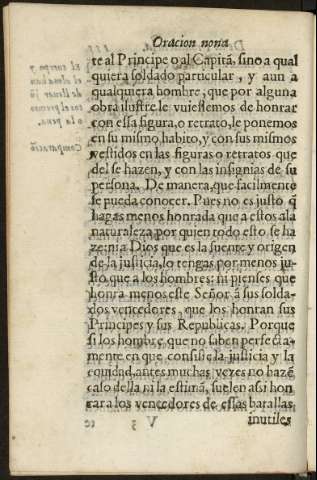 Oracion nona
te al Principe o al Capitã, sino a qual
quiera soldado particular, y aun a
qualquiera hombre, que por alguna
obra ilustre le vuiessemos de honrar
con essa figura, o retrato, le ponemos
en su mismo habito, y con sus mismos
vestidos en las figuras o retratos que
del se hazen, y con las insignias de su
persona. De manera, que facilmente
se pueda conocer. Pues no es justo, q̃
hagas menos honrada que a estos a la
naturaleza por quien todo esto se ha
ze: ni a Dios que es la fuente y origen
de la justicia, lo tengas por menos ju-
sto que a los hombres: ni pienses que
honra menos este Señor à sus solda-
dos vencedores, que los honran sus
Principes y sus Republicas. Porque
si los hombre, que no saben perfecta-
mente en que consiste la justicia y la
equidad, antes muchas vezes no hazẽ
caso della ni la estimã, suelen assi hon
rar a los vencedores de essas batallas
V 3
inutiles